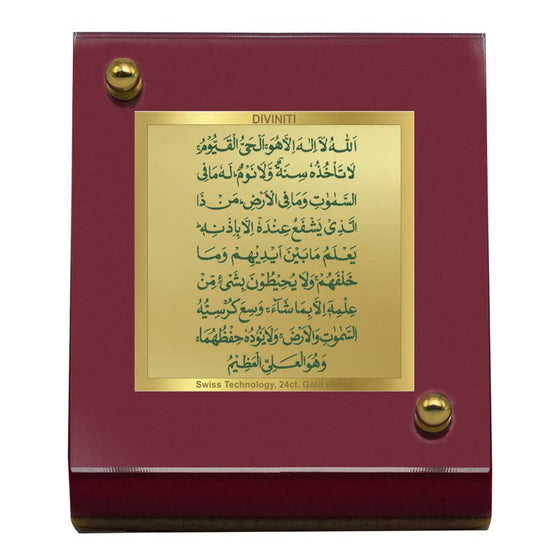 DIVINITI
اَللّٰهُ لَاۤ اِلٰهَ اِلَّا هُوَۚ اَلْحَیُّ الْقَیُّوْمُ۬
لَا تَاْخُذُهٗ سِنَةٌ وَّلَا نَوْمٌؕ لَهٗ مَا فِی
السَّمٰوٰتِ وَمَا فِی الْاَرْضِؕ مَنْ ذَا
الَّذِیْ یَشْفَعُ عِنْدَهٗۤ اِلَّا بِاِذْنِهٖؕ
یَعْلَمُ مَا بَیْنَ اَیْدِیْهِمْ وَمَا
خَلْفَهُمْۚ وَلَا یُحِیْطُوْنَ بِشَیْءٍ مِّنْ
عِلْمِهٖۤ اِلَّا بِمَا شَآءَۚ وَسِعَ كُرْسِیُّهُ
السَّمٰوٰتِ وَالْاَرْضَۚ وَلَا یَـُٔوْدُهٗ حِفْظُهُمَاۚ
وَهُوَ الْعَلِیُّ الْعَظِیْمُ
Swiss Technology, 24ct. Gold plated